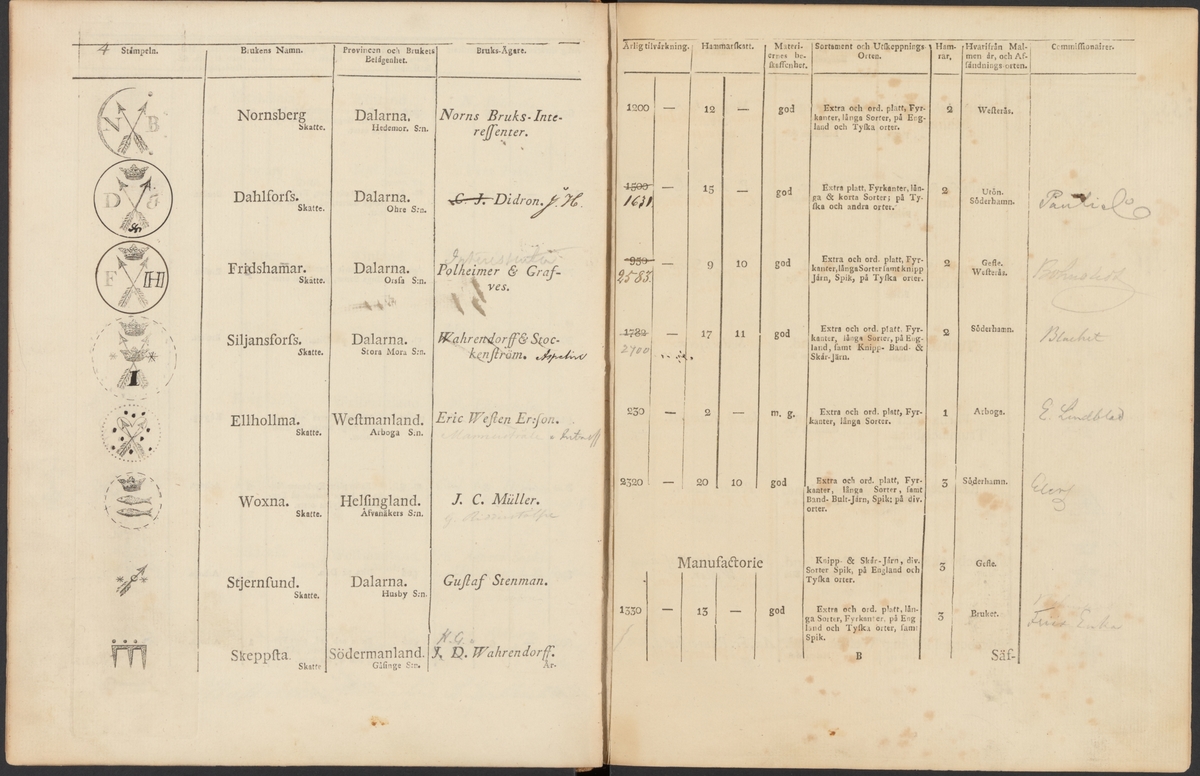 4
Stämpeln.
Brukens Namn.
Provincen och Brukets
Belägenhet.
Bruks-Ägare.
Nornsberg
Skatte.
Dalarna.
Hedemor. S:n.
Norns Bruks-Inte-
reſſenter.
Dahlforſs.
Skatte.
Dalarna.
Ohre S:n.
C. J. Didron. J. H.
Fridshamar.
Skatte.
Dalarna.
Orſa S:n.
Polheimer & Graf-
ves.
Siljansforſs.
Skatte.
Dalarna.
Stora Mora S:n.
Wahrendorff & Stoc-
kenſtröm. Aspelin
Ellhollma.
Skatte.
Weſtmanland.
Arboga S:n.
Eric Weſten Er:ſon.
Woxna.
Skatte.
Helſingland.
Åfvanåkers S:n.
J. C. Müller.
Stjernſund.
Skatte.
Dalarna.
Husby S:n.
Guſtaf Stenman.
Skeppſta.
Skatte
Södermanland.
Gåſinge S:n.
H. G.
J. D. Wahrendorff.
Är-
Årlig tilvärkning.
Hammarſkatt.
Materi-
ernes be-
ſkaffenhet.
Sortament och Utſkeppnings-
Orten.
Ham-
rar.
Hvarifrån Mal-
men är, och Af-
ſändnings-orten.
Commiſſionairer.
1200 — 12 — god
Extra och ord. platt, Fyr-
kanter, långa Sorter, på Eng-
land och Tyſka orter.
2
Weſterås.
1500 — 15 — god
1631
Extra platt, Fyrkanter, lån-
ga & korta Sorter; på Ty-
ſka och andra orter.
2
Utön.
Söderhamn.
950 9 10 god
2583
Extra och ord. platt, Fyr-
kanter, långa Sorter ſamt knipp
Järn, Spik, på Tyſka orter.
2
Gefle.
Weſterås.
1782 — 17 11 god
2400
Extra och ord. platt. Fyr-
kanter, långa Sorter, på Eng-
land, ſamt Knipp- Band- &
Skär-Järn.
2
Söderhamn.
Blachet
230 — 2 — m. g.
Extra och ord. platt, Fyr-
kanter, långa Sorter.
1
Arboga.
E. Lindblad
2320 — 20 10 god
Extra och ord. platt, Fyr-
kanter, långa Sorter, ſamt
Band- Bult-Järn, Spik; på div.
orter.
3
Söderhamn.
Manufactorie
Knipp- & Skär-Järn, div.
Sorter Spik, på England och
Tyſka orter.
3
Gefle.
1330 — 13 — god
Extra och ord. platt, lån-
ga Sorter, Fyrkanter, på Eng
land och Tyſka orter, ſamt
Spik.
3
Bruket.
B
Säf-